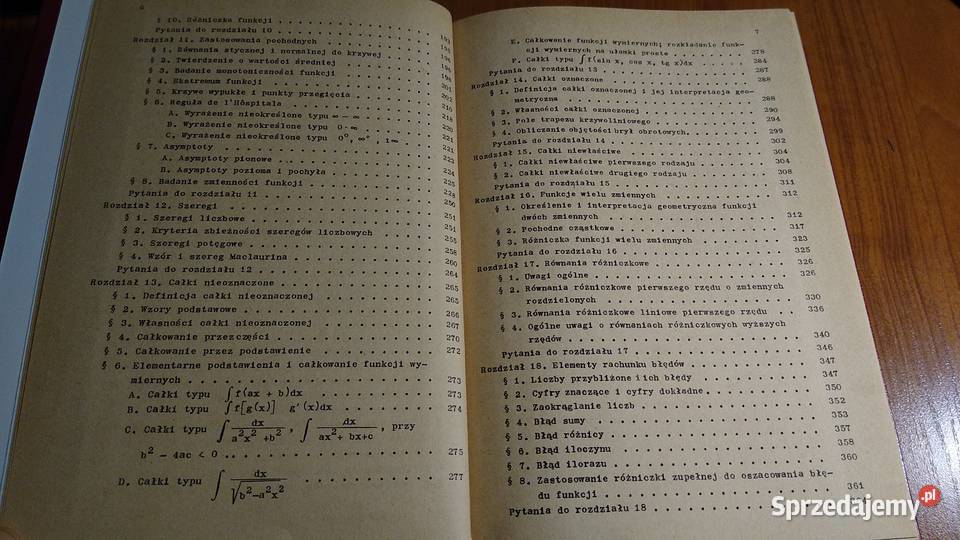 6
§ 10. Różniczka funkcji
Pytania do rozdziału 10
Rozdział 11. Zastosowania pochodnych
§ 1. Równania stycznej i normalnej do krzywej
§ 2. Twierdzenie o wartości średniej
§ 3. Badanie monotoniczności funkcji
§ 4. Ekstremum funkcji
§ 5. Krzywe wypukłe i punkty przegięcia
§ 6. Reguła de l'Hôspitala
A. Wyrażenie nieokreślone typu ∞ − ∞
B. Wyrażenie nieokreślone typu 0·∞
C. Wyrażenie nieokreślone typu 0⁰, ∞⁰, 1^∞
§ 7. Asymptoty
A. Asymptoty pionowe
B. Asymptoty pozioma i pochyła
§ 8. Badanie zmienności funkcji
Pytania do rozdziału 11
Rozdział 12. Szeregi
§ 1. Szeregi liczbowe . . . 251
§ 2. Kryteria zbieżności szeregów liczbowych
§ 3. Szeregi potęgowe . . . 255
§ 4. Wzór i szereg Maclaurina . . . 258
Pytania do rozdziału 12 . . . 264
Rozdział 13. Całki nieoznaczone . . . 265
§ 1. Definicja całki nieoznaczonej . . . 265
§ 2. Wzory podstawowe . . . 266
§ 3. Własności całki nieoznaczonej . . . 267
§ 4. Całkowanie przez części . . . 270
§ 5. Całkowanie przez podstawienie . . . 272
§ 6. Elementarne podstawienia i całkowanie funkcji wy-
miernych . . . 273
A. Całki typu ∫f(ax + b)dx . . . 273
B. Całki typu ∫f[g(x)] g'(x)dx . . . 274
C. Całki typu ∫ dx / (a²x² +b²) , ∫ dx / (ax²+ bx+c) , przy
b² − 4ac < 0 . . . 275
D. Całki typu ∫ dx / √(b²−a²x²) . . . 277
7
E. Całkowanie funkcji wymiernych; rozkładanie funk-
cji wymiernych na ułamki proste . . . 278
F. Całki typu ∫f(sin x, cos x, tg x)dx . . . 284
Pytania do rozdziału 13 . . . 287
Rozdział 14. Całki oznaczone . . . 288
§ 1. Definicja całki oznaczonej i jej interpretacja geo-
metryczna . . . 288
§ 2. Własności całki oznaczonej . . . 290
§ 3. Pole trapezu krzywoliniowego . . . 294
§ 4. Obliczanie objętości brył obrotowych . . . 299
Pytania do rozdziału 14 . . . 302
Rozdział 15. Całki niewłaściwe . . . 304
§ 1. Całki niewłaściwe pierwszego rodzaju . . . 304
§ 2. Całki niewłaściwe drugiego rodzaju . . . 308
Pytania do rozdziału 15 . . . 311
Rozdział 16. Funkcje wielu zmiennych . . . 312
§ 1. Określenie i interpretacja geometryczna funkcji
dwóch zmiennych . . . 312
§ 2. Pochodne cząstkowe . . . 317
§ 3. Różniczka funkcji wielu zmiennych . . . 323
Pytania do rozdziału 16 . . . 325
Rozdział 17. Równania różniczkowe . . . 326
§ 1. Uwagi ogólne . . . 326
§ 2. Równania różniczkowe pierwszego rzędu o zmiennych
rozdzielonych . . . 330
§ 3. Równania różniczkowe liniowe pierwszego rzędu . . 336
§ 4. Ogólne uwagi o równaniach różniczkowych wyższych
rzędów . . . 340
Pytania do rozdziału 17 . . . 346
Rozdział 18. Elementy rachunku błędów . . . 347
§ 1. Liczby przybliżone i ich błędy . . . 347
§ 2. Cyfry znaczące i cyfry dokładne . . . 350
§ 3. Zaokrąglanie liczb . . . 352
§ 4. Błąd sumy . . . 353
§ 5. Błąd różnicy . . . 357
§ 6. Błąd iloczynu . . . 358
§ 7. Błąd ilorazu . . . 360
§ 8. Zastosowanie różniczki zupełnej do oszacowania błę-
du funkcji . . . 361
Pytania do rozdziału 18
Sprzedajemy.pl